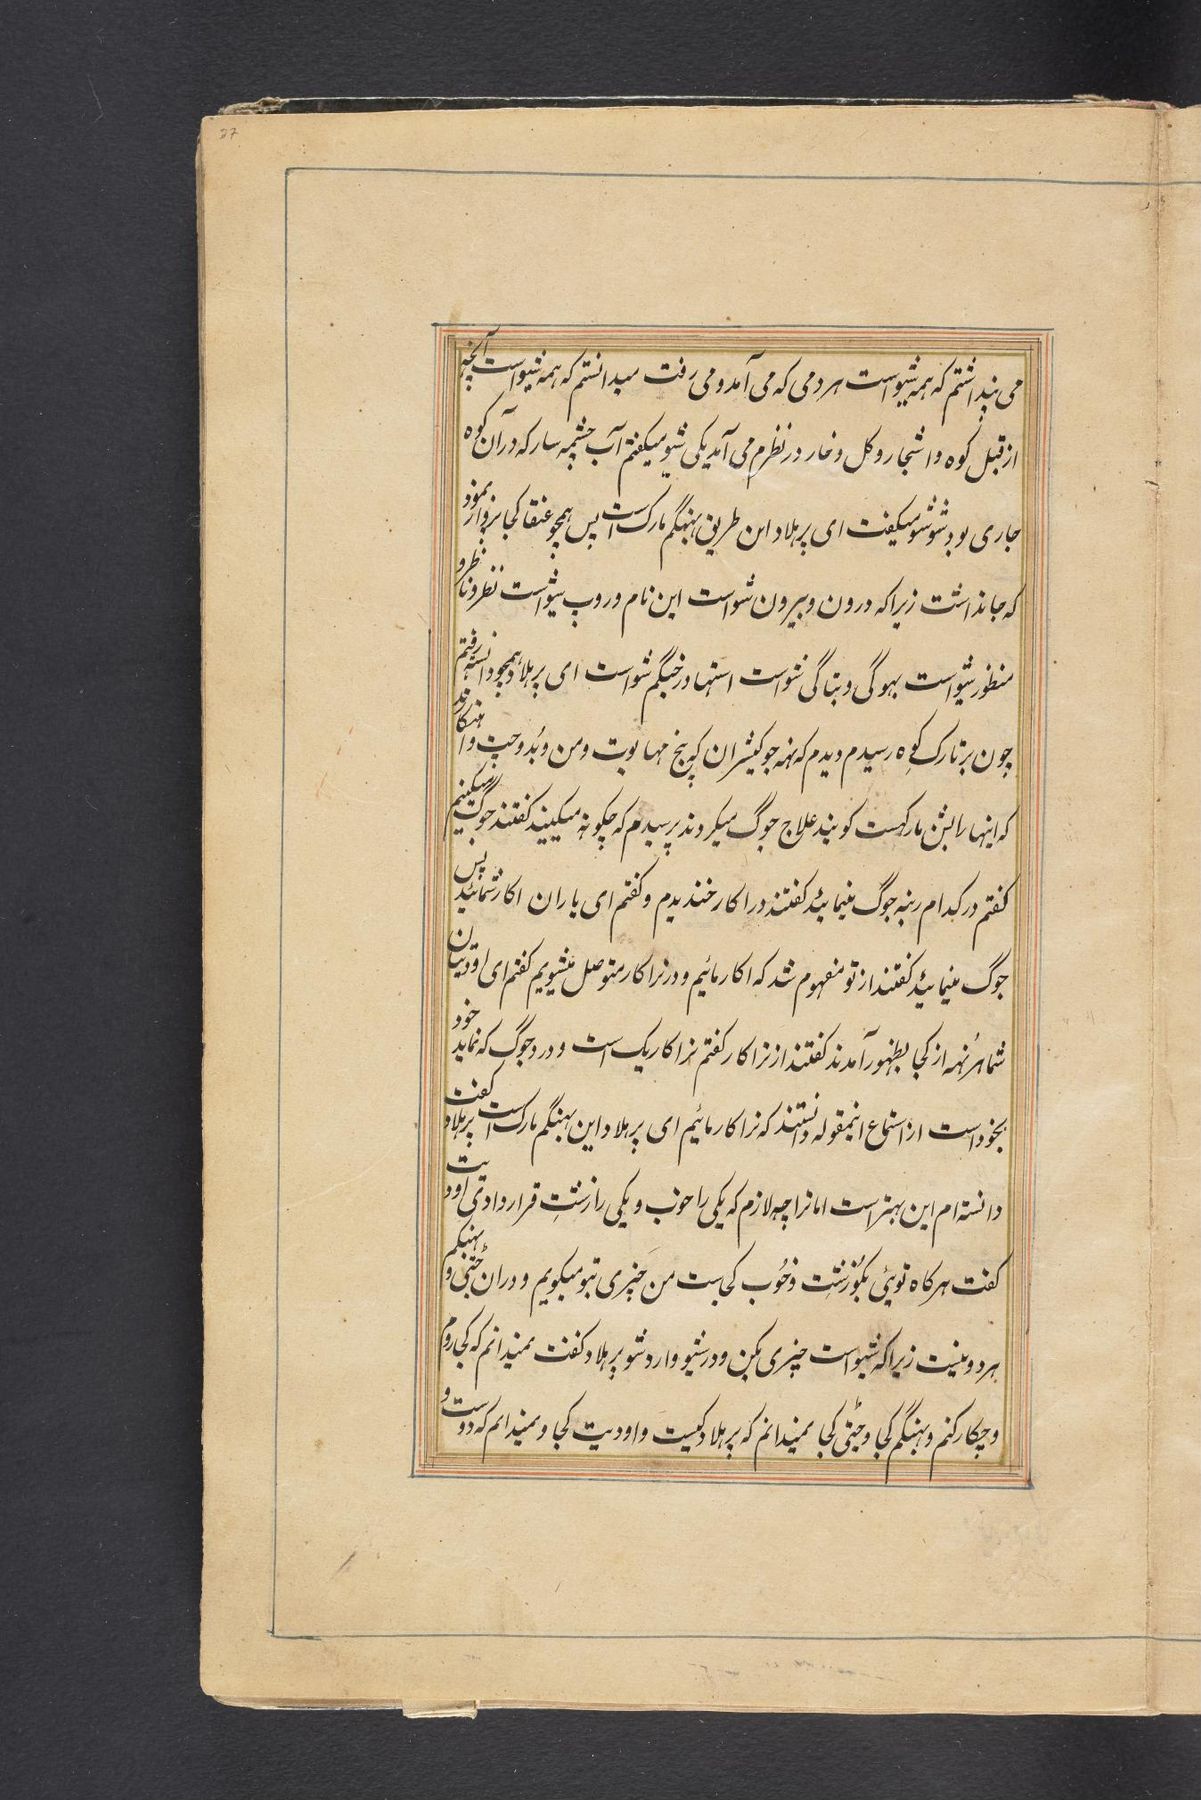 37
می پنداشتم که همه شیو است هر دمی که می آمد و می رفت میدانستم که همه شیو است آنچه
از قبل کوه و اشجار و کل و خار در نظرم می آمد یکی شیو میکفتم آب چشمه سار که در آن کوه
جاری بود شو شو میکفت ای پرهلاد این طریق بهنگم مارک است پس همچو عنقا کجا پرواز نمود
که جا نذاشت زیرا که درون و بیرون شو است این نام و روپ شیو است نظر و ناظر و
منظور شیو است بهوگی و تیاگی شو است استهاور جنگم شو است ای پرهلاد همچو دانسته رفتم
چون بر تارک کوه رسیدم دیدم که نهه جوکیشران که پنج مها بوت و من و بُد و چت و اهنکار
که اینها را بشن مارکهست کویند علاج جوگ میکردند پرسیدم که چکونه میکنید کفتند جوگ میکنیم
کفتم در کدام رتبه جوگ مینمائید کفتند در اکار خندیدم و کفتم ای یاران اکار شمائید پس
جوگ مینمائید کفتند از تو مفهوم شد که اکار مائیم و در نراکار متوصل میشویم کفتم ای اودیتیان
شما هر نهه از کجا بظهور آمدند کفتند از نراکار کفتم نراکار یک است و در دجوگ که نماید خود
بخود است از استماع اینمقوله دانستند که نراکار مائیم ای پرهلاد این بهنگم مارک است کفت پرهلاد
دانسته ام این بهتر است اما ترا چه لازم که یکی را خوب و یکی را زشت قرار دادی اودیت
کفت هرکاه توئی بکو زشت و خوب کجاست من چیزی بتو میکویم و دران چنتی و بهنگم
هر دو نیست زیرا که شیو است چیزی بکن و در شیو وارد شو پرهلاد کفت نمیدانم که کجا روم
و چکار کنم و بهنگم کجا و چنتی کجا نمیدانم که پرهلاد کیست و اودیت کجا و نمیدانم که دوست و